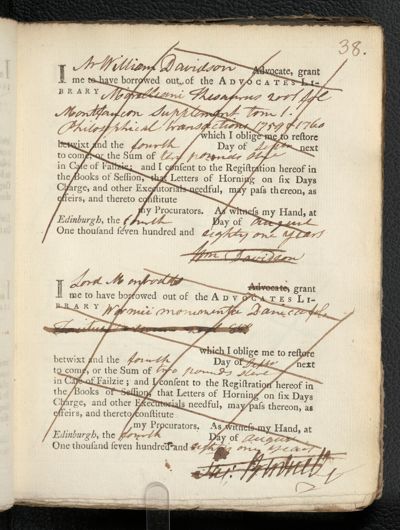 38.
I Mr William Davidson Advocate, grant
me to have borrowed out of the ADVOCATES LI-
BRARY Thesaurus 2 vol fol
Montfaucon Supplement tom 1.
Philosophical Transactions 1759 & 1760
which I oblige me to reſtore
betwixt and the fourth Day of next
to come, or the Sum of ten pounds
in Caſe of Failzie; and I conſent to the Regiſtration hereof in
the Books of Seſſion, that Letters of Horning on ſix Days
Charge, and other Executorials needful, may paſs thereon, as
effeirs, and thereto conſtitute
my Procurators. As witneſs my Hand, at
Edinburgh, the fourth Day of august
One thouſand ſeven hundred and eighty one years
Wm Davidson
I Lord Monboddo Advocate, grant
me to have borrowed out of the ADVOCATES LI-
BRARY Wormii monumenta Danica
which I oblige me to reſtore
betwixt and the fourth Day of next
to come, or the Sum of two pounds
in Caſe of Failzie; and I conſent to the Regiſtration hereof in
the Books of Seſſion, that Letters of Horning on ſix Days
Charge, and other Executorials needful, may paſs thereon, as
effeirs, and thereto conſtitute
my Procurators. As witneſs my Hand, at
Edinburgh, the fourth Day of august
One thouſand ſeven hundred and eighty one years
Ja: Burnett